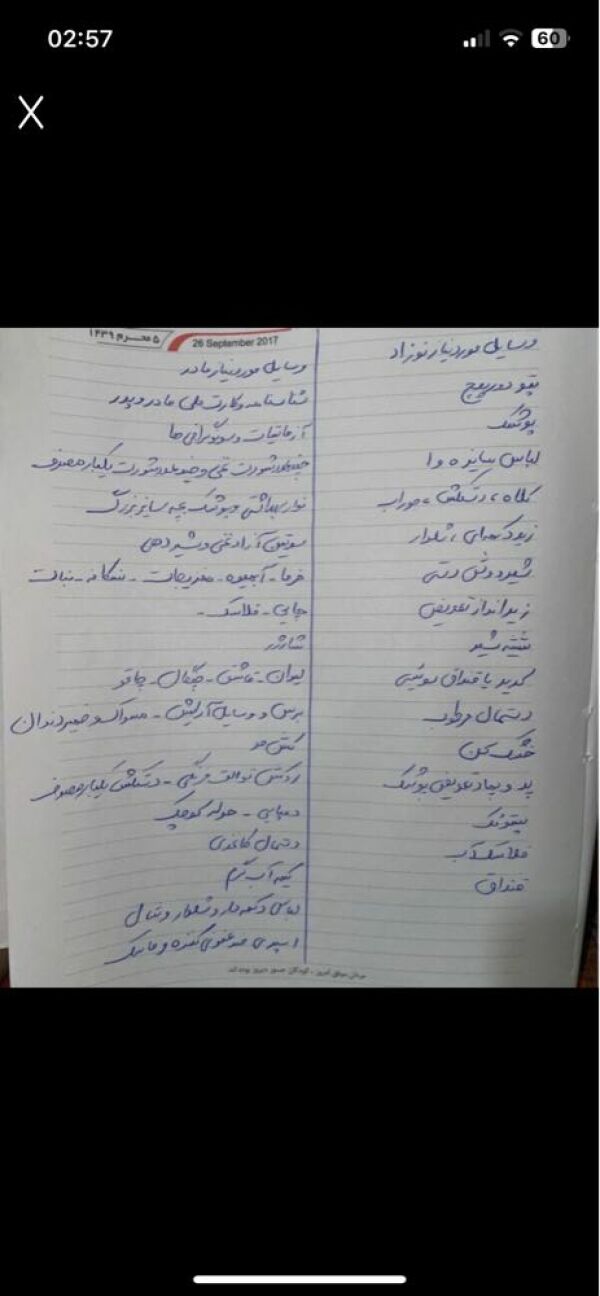 02:57
60
X
۵ محرم ۱۴۳۹
26 September 2017
وسایل مورد نیاز نوزاد
پتو دورپیچ
پوشک
لباس سایز ۰ و ۱
کلاه، دستکش، جوراب
زیردکمه‌ای، شلوار
شیردوش دستی
زیرانداز تعویض
شیشه شیر
کریر یا قنداق سوئیتی
دستمال مرطوب
خشک کن
پد و پماد تعویض پوشک
پتو
فلاسک آب
قنداق
وسایل مورد نیاز مادر
شناسنامه و کارت ملی مادر و پدر
آزمایشات و سونوگرافی ها
شورت نخی و شورت یکبار مصرف
نوار بهداشتی و پوشک بچه سایز بزرگ
سوتین آزاد نخی و شیردهی
خرما - آبمیوه - مغزیجات - نبات
چایی - فلاسک -
شارژر
لیوان - قاشق - چنگال - چاقو
برس و وسایل آرایش - مسواک و خمیردندان
کش مو
روکش توالت فرنگی - دستکش یکبار مصرف
دمپایی - حوله کوچک
دستمال کاغذی
کیسه آب گرم
لباس دکمه دار و شلوار و شال
اسپری ضدعفونی کننده و ماسک